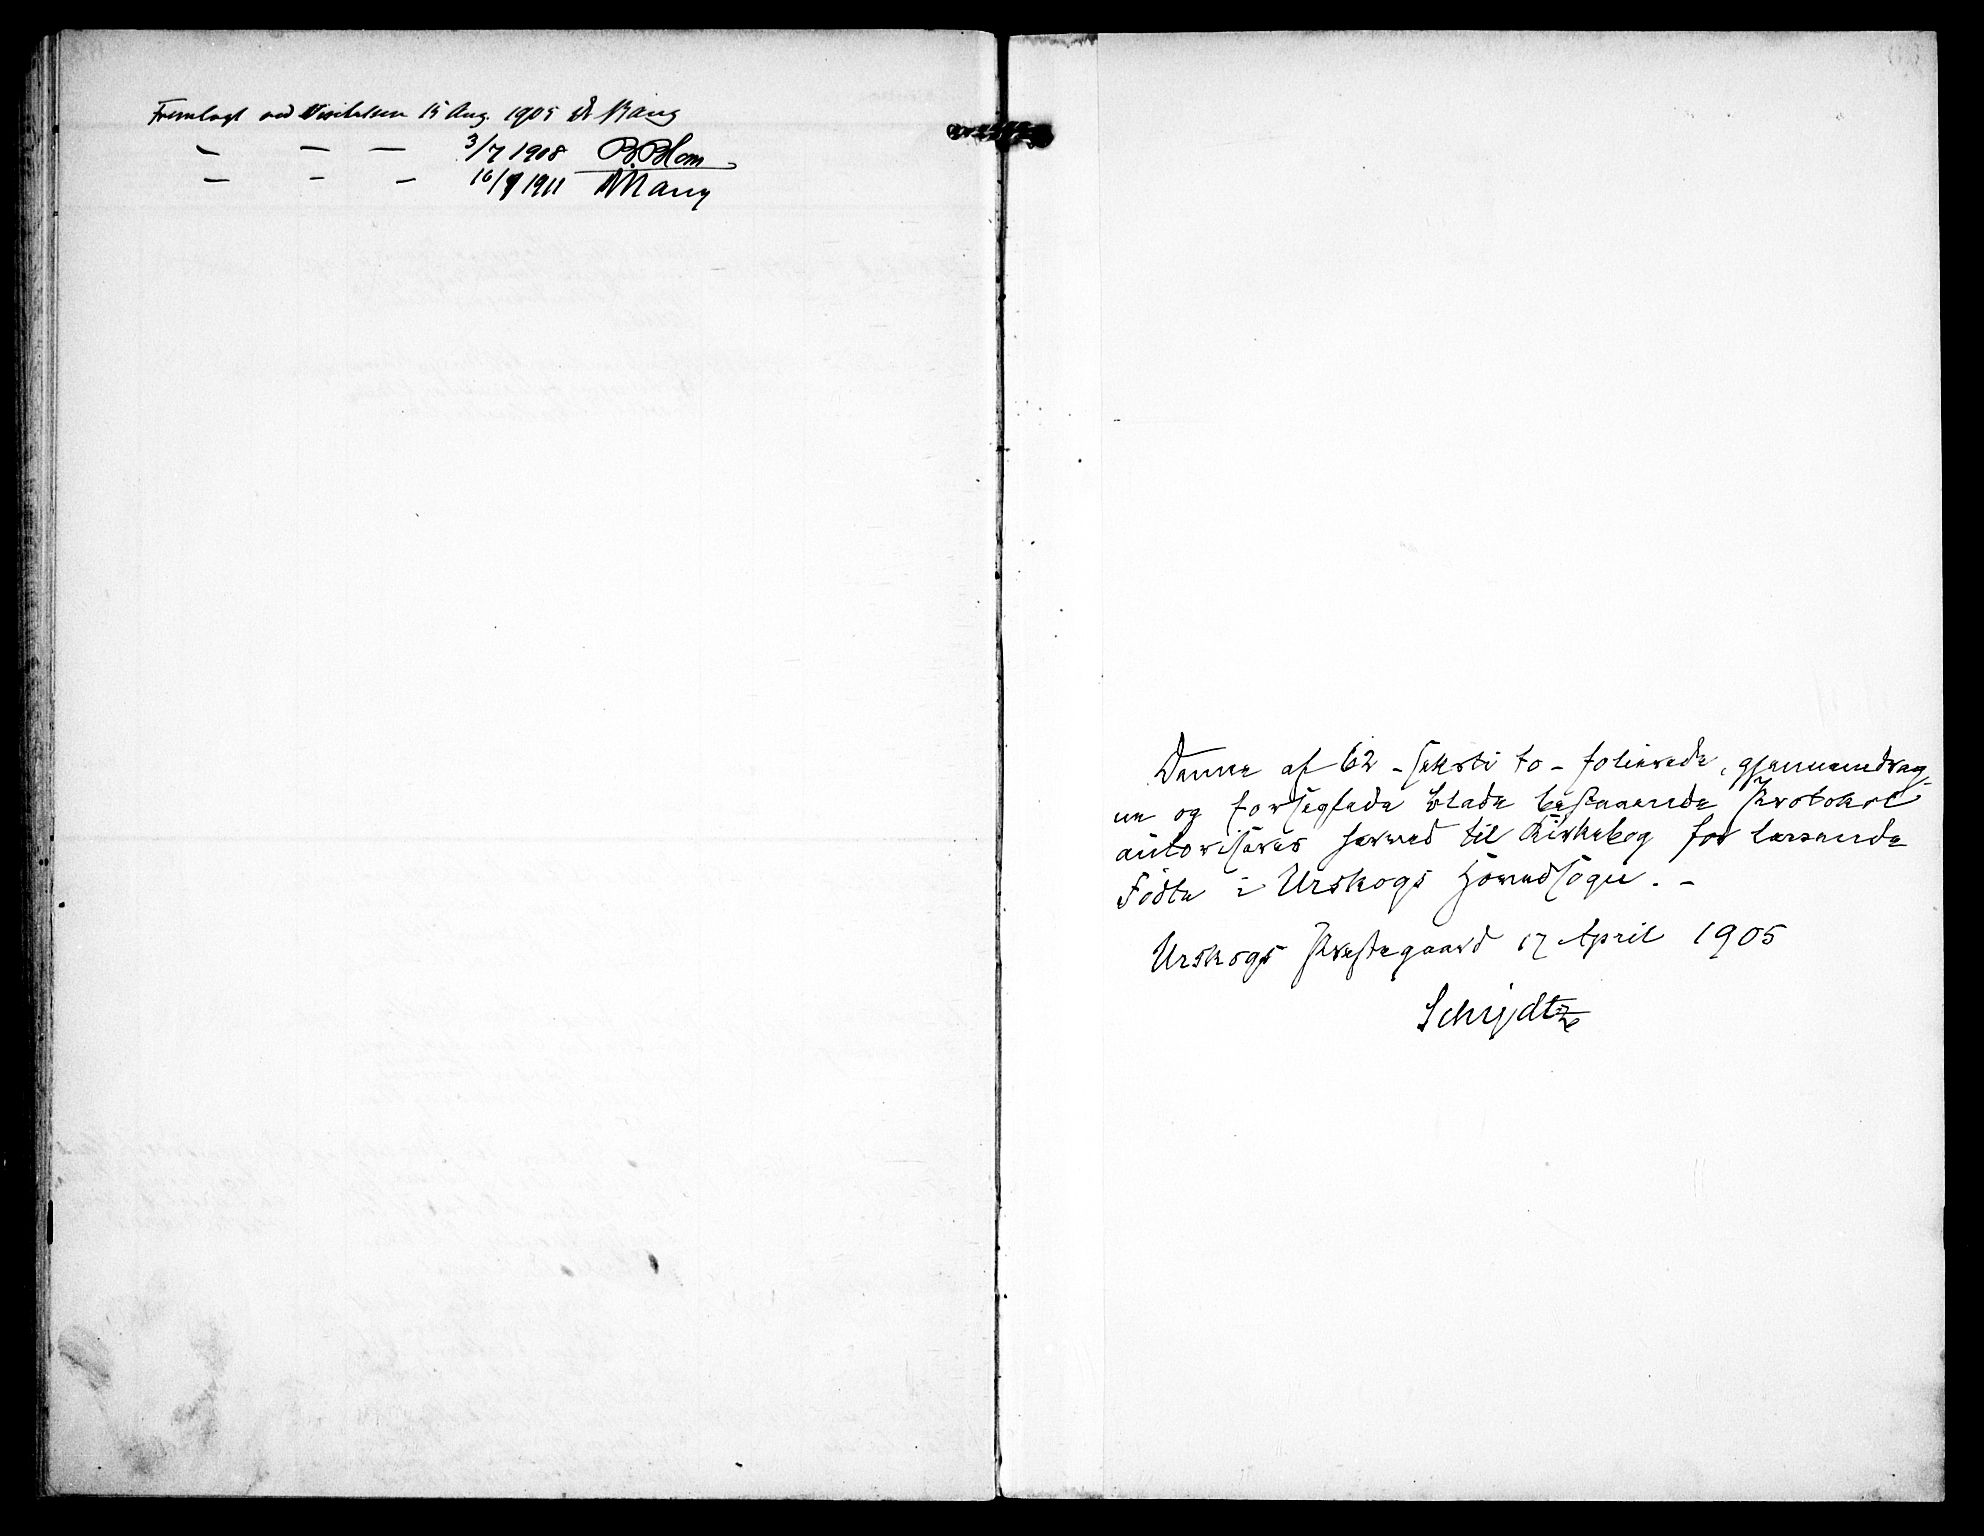 Fremlagt ved Visitatsen 15 Aug. 1905 Bang
— — — 3/7 1908 B. Blom
— — — 16/9 1911 Bang
Denne af 62 - seksti to - folierede, gjennemdrag-
ne og forseglede blade bestaaende Protokol
autoriseres herved til Kirkebog for levende
Fødte i Urskogs Hovedsogn. -
Urskogs Prestegaard 17 April 1905
Schijdtz